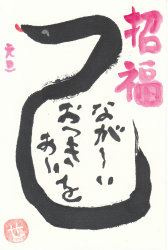 招福
元旦
ながーい
おつきあいを